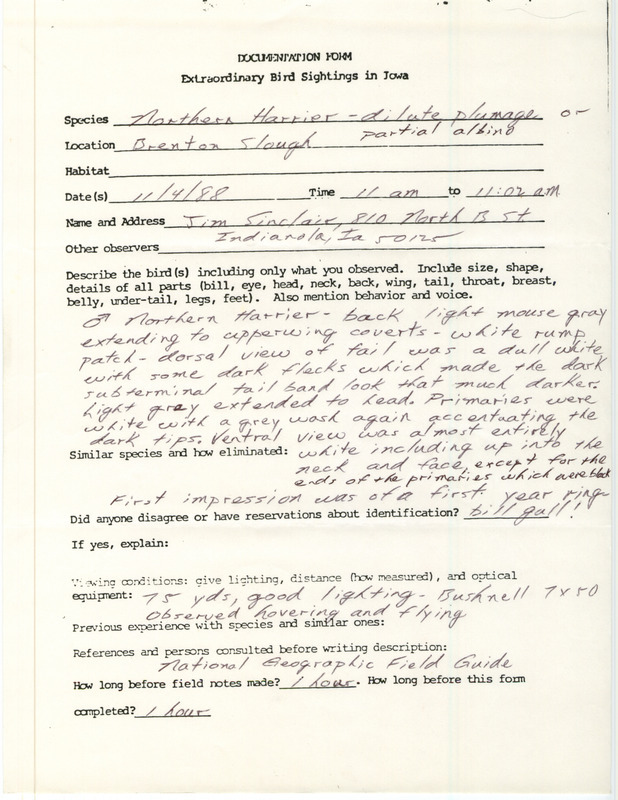 DOCUMENTATION FORM
Extraordinary Bird Sightings in Iowa
Species Northern Harrier - dilute plumage or
partial albino
Location Brenton Slough
Habitat
Date(s) 11/4/88 Time 11 am to 11:02 a.m.
Name and Address Jim Sinclair, 810 North B St
Indianola, Ia 50125
Other observers
Describe the bird(s) including only what you observed. Include size, shape,
details of all parts (bill, eye, head, neck, back, wing, tail, throat, breast,
belly, under-tail, legs, feet). Also mention behavior and voice.
♂ Northern Harrier - back light mouse gray
extending to upperwing coverts - white rump
patch - dorsal view of tail was a dull white
with some dark flecks which made the dark
subterminal tail band look that much darker.
Light gray extended to head. Primaries were
white with a grey wash again accentuating the
dark tips. Ventral view was almost entirely
Similar species and how eliminated: white including up into the
neck and face, except for the
ends of the primaries which were black
First impression was of a first year ring-
Did anyone disagree or have reservations about identification? bill gull!
If yes, explain:
Viewing conditions: give lighting, distance (how measured), and optical
equipment: 75 yds, good lighting - Bushnell 7x50
Observed hovering and flying
Previous experience with species and similar ones:
References and persons consulted before writing description:
National Geographic Field Guide
How long before field notes made? 1 hour. How long before this form
completed? 1 hour